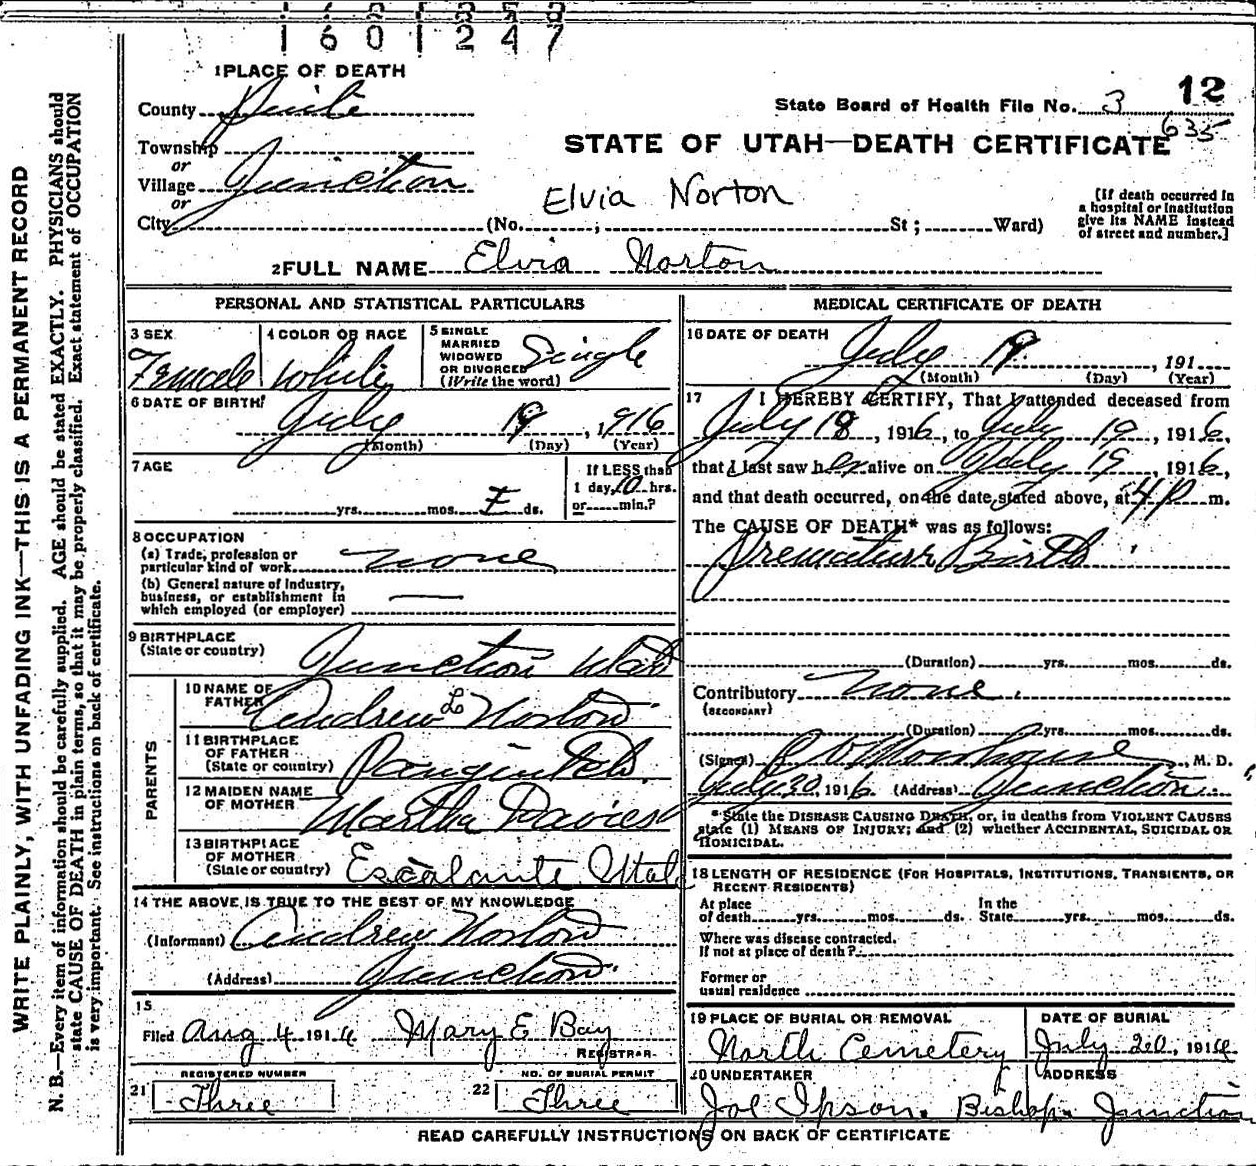 1601247
1 PLACE OF DEATH
County Piute
State Board of Health File No. 3 12
635
STATE OF UTAH—DEATH CERTIFICATE
Township
or
Village Junction
or
City (No. ; St ; Ward)
Elvia Norton
[If death occurred in
a hospital or institution
give its NAME instead
of street and number.]
2 FULL NAME Elvia Norton
PERSONAL AND STATISTICAL PARTICULARS
3 SEX
Female
4 COLOR OR RACE
White
5 SINGLE
MARRIED
WIDOWED
OR DIVORCED
(Write the word)
Single
6 DATE OF BIRTH
July 19, 1916
(Month) (Day) (Year)
7 AGE
yrs. mos. ds.
If LESS than
1 day, 10 hrs.
or min.?
8 OCCUPATION
(a) Trade, profession or
particular kind of work none
(b) General nature of industry,
business, or establishment in
which employed (or employer) —
9 BIRTHPLACE
(State or country)
Junction Utah
PARENTS
10 NAME OF
FATHER
Andrew L Norton
11 BIRTHPLACE
OF FATHER
(State or country)
12 MAIDEN NAME
OF MOTHER
Martha Davies
13 BIRTHPLACE
OF MOTHER
(State or country)
Escalante Utah
14 THE ABOVE IS TRUE TO THE BEST OF MY KNOWLEDGE
(Informant) Andrew Norton
(Address) Junction
15
Filed Aug 4 1916 Mary E Bay
REGISTRAR
REGISTERED NUMBER
21 Three
NO. OF BURIAL PERMIT
22 Three
MEDICAL CERTIFICATE OF DEATH
16 DATE OF DEATH
July 19, 191
(Month) (Day) (Year)
17 I HEREBY CERTIFY, That I attended deceased from
July 18, 1916, to July 19, 1916,
that I last saw her alive on July 19, 1916,
and that death occurred, on the date stated above, at 4 p m.
The CAUSE OF DEATH* was as follows:
Premature Birth
(Duration) yrs. mos. ds.
Contributory none
(SECONDARY)
(Duration) yrs. mos. ds.
(Signed) M. D.
July 20, 1916 (Address) Junction
*State the DISEASE CAUSING DEATH, or, in deaths from VIOLENT CAUSES
state (1) MEANS OF INJURY; and (2) whether ACCIDENTAL, SUICIDAL OR
HOMICIDAL.
18 LENGTH OF RESIDENCE (FOR HOSPITALS, INSTITUTIONS, TRANSIENTS, OR
RECENT RESIDENTS)
At place
of death yrs. mos. ds.
In the
State yrs. mos. ds.
Where was disease contracted.
If not at place of death?
Former or
usual residence
19 PLACE OF BURIAL OR REMOVAL
North Cemetery
DATE OF BURIAL
July 20, 1916
20 UNDERTAKER
Jol Ipson. Bishop
ADDRESS
Junction
READ CAREFULLY INSTRUCTIONS ON BACK OF CERTIFICATE
WRITE PLAINLY, WITH UNFADING INK—THIS IS A PERMANENT RECORD
N. B.—Every item of information should be carefully supplied. AGE should be stated EXACTLY. PHYSICIANS should
state CAUSE OF DEATH in plain terms, so that it may be properly classified. Exact statement of OCCUPATION
is very important. See instructions on back of certificate.